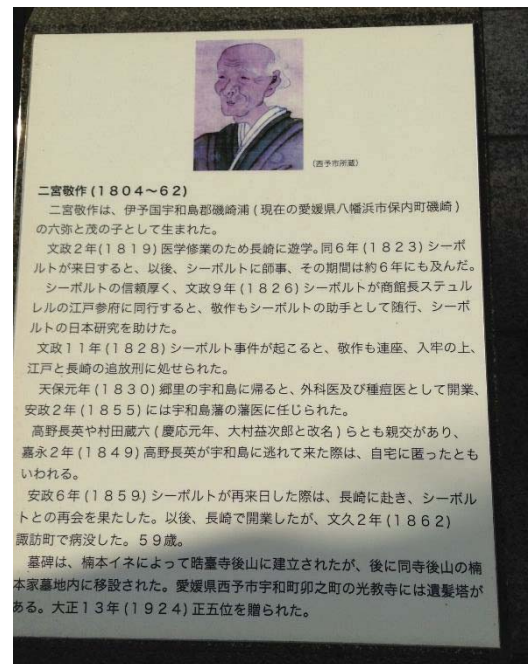 (西予市所蔵)
二宮敬作(1804～62)
二宮敬作は、伊予国宇和島郡磯崎浦(現在の愛媛県八幡浜市保内町磯崎)
の六弥と茂の子として生まれた。
文政2年(1819)医学修業のため長崎に遊学。同6年(1823)シーボ
ルトが来日すると、以後、シーボルトに師事、その期間は約6年にも及んだ。
シーボルトの信頼厚く、文政9年(1826)シーボルトが商館長ステュル
レルの江戸参府に同行すると、敬作もシーボルトの助手として随行、シーボ
ルトの日本研究を助けた。
文政11年(1828)シーボルト事件が起こると、敬作も連座、入牢の上、
江戸と長崎の追放刑に処せられた。
天保元年(1830)郷里の宇和島に帰ると、外科医及び種痘医として開業、
安政2年(1855)には宇和島藩の藩医に任じられた。
高野長英や村田蔵六(慶応元年、大村益次郎と改名)らとも親交があり、
嘉永2年(1849)高野長英が宇和島に逃れて来た際は、自宅に匿ったとも
いわれる。
安政6年(1859)シーボルトが再来日した際は、長崎に赴き、シーボル
トとの再会を果たした。以後、長崎で開業したが、文久2年(1862)
諏訪町で病没した。59歳。
墓碑は、楠本イネによって晧臺寺後山に建立されたが、後に同寺後山の楠
本家墓地内に移設された。愛媛県西予市宇和町卯之町の光教寺には遺髪塔が
ある。大正13年(1924)正五位を贈られた。